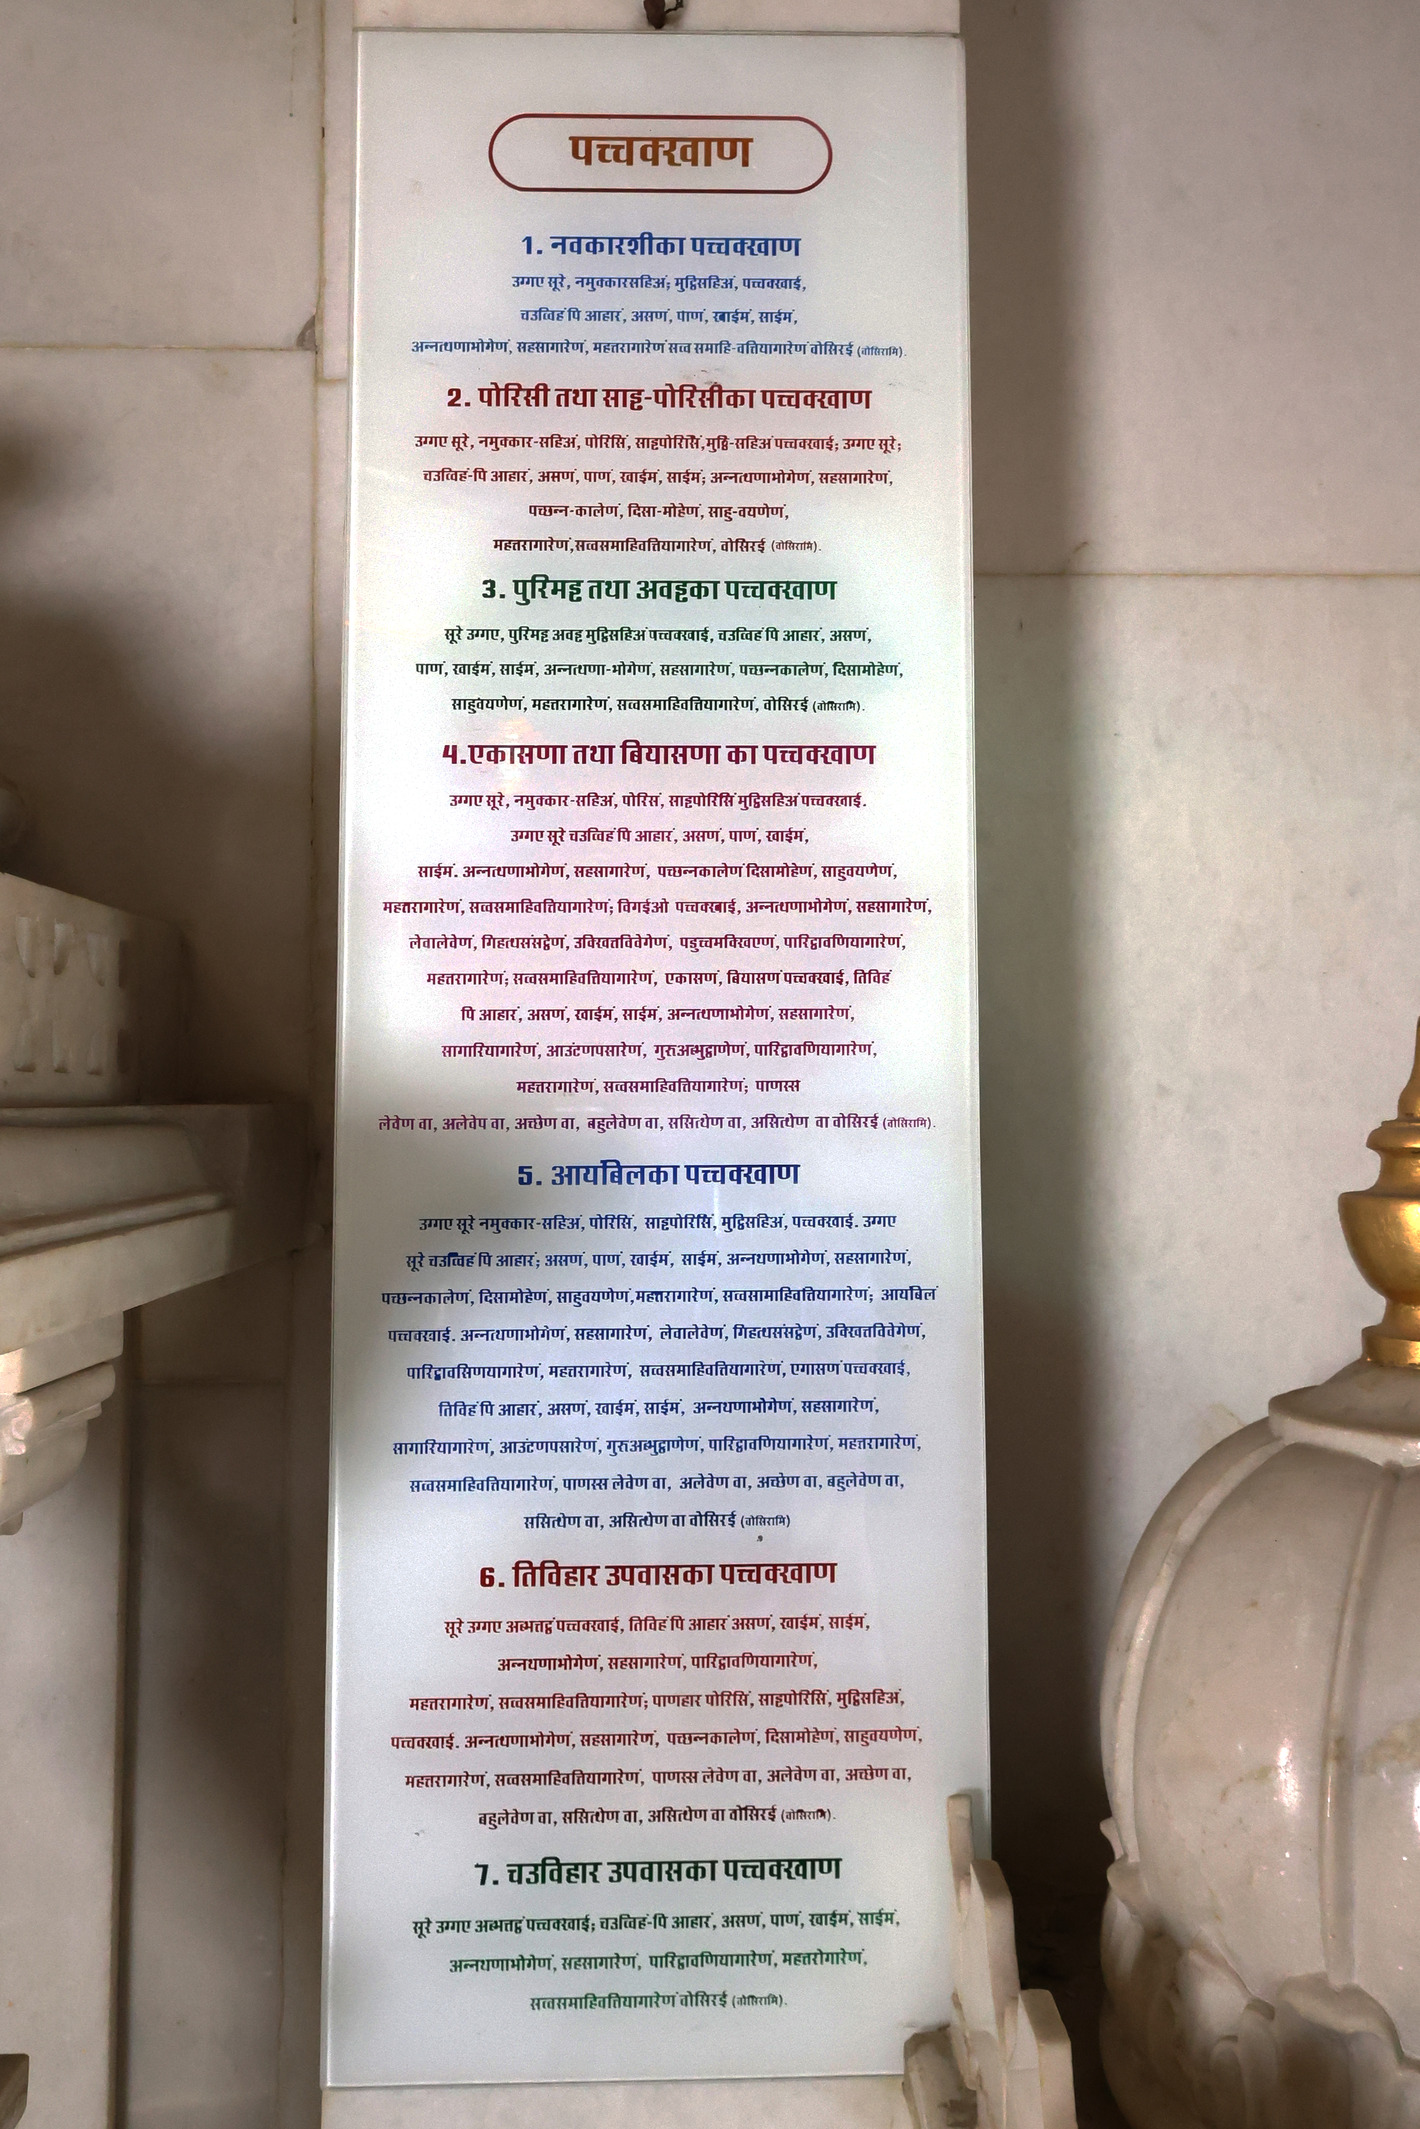 पच्चक्खाण
1. नवकारशीका पच्चक्खाण
उग्गए सूरे, नमुक्कारसहिअं; मुट्ठिसहिअं, पच्चक्खाई,
चउव्विहं पि आहारं, असणं, पाणं, खाईमं, साईमं,
अन्नत्थणाभोगेणं, सहसागारेणं, महत्तरागारेणं सव्व समाहि-वत्तियागारेणं वोसिरई (वोसिरामि).
2. पोरिसी तथा साड्ढ-पोरिसीका पच्चक्खाण
उग्गए सूरे, नमुक्कार-सहिअं, पोरिसिं, साड्ढपोरिसिं,मुठ्ठि-सहिअं पच्चक्खाई; उग्गए सूरे;
चउव्विहं-पि आहारं, असणं, पाणं, खाईमं, साईमं; अन्नत्थणाभोगेणं, सहसागारेणं,
पच्छन्न-कालेणं, दिसा-मोहेणं, साहु-वयणेणं,
महत्तरागारेणं,सव्वसमाहिवत्तियागारेणं, वोसिरई (वोसिरामि).
3. पुरिमड्ढ तथा अवड्ढका पच्चक्खाण
सूरे उग्गए, पुरिमड्ढ अवड्ढ मुट्ठिसहिअं पच्चक्खाई, चउव्विहं पि आहारं, असणं,
पाणं, खाईमं, साईमं, अन्नत्थणा-भोगेणं, सहसागारेणं, पच्छन्नकालेणं, दिसामोहेणं,
साहुवयणेणं, महत्तरागारेणं, सव्वसमाहिवत्तियागारेणं, वोसिरई (वोसिरामि).
4.एकासणा तथा बियासणा का पच्चक्खाण
उग्गए सूरे, नमुक्कार-सहिअं, पोरिसं, साड्ढपोरिसिं मुट्ठिसहिअं पच्चक्खाई.
उग्गए सूरे चउव्विहं पि आहारं, असणं, पाणं, खाईमं,
साईमं. अन्नत्थणाभोगेणं, सहसागारेणं, पच्छन्नकालेणं दिसामोहेणं, साहुवयणेणं,
महत्तरागारेणं, सव्वसमाहिवत्तियागारेणं; विगईओ पच्चक्खाई, अन्नत्थणाभोगेणं, सहसागारेणं,
लेवालेवेणं, गिहत्थसंसट्ठेणं, उक्खित्तविवेगेणं, पडुच्चमक्खिएणं, पारिट्ठावणियागारेणं,
महत्तरागारेणं; सव्वसमाहिवत्तियागारेणं, एकासणं, बियासणं पच्चक्खाई, तिविहं
पि आहारं, असणं, खाईमं, साईमं, अन्नत्थणाभोगेणं, सहसागारेणं,
सागारियागारेणं, आउंटणपसारेणं, गुरुअब्भुट्ठाणेणं, पारिट्ठावणियागारेणं,
महत्तरागारेणं, सव्वसमाहिवत्तियागारेणं; पाणस्स
लेवेण वा, अलेवेप वा, अच्छेण वा, बहुलेवेण वा, ससित्थेण वा, असित्थेण वा वोसिरई (वोसिरामि).
5. आयंबिलका पच्चक्खाण
उग्गए सूरे नमुक्कार-सहिअं, पोरिसिं, साड्ढपोरिसिं, मुट्ठिसहिअं, पच्चक्खाई. उग्गए
सूरे चउव्विहं पि आहारं; असणं, पाणं, खाईमं, साईमं, अन्नथणाभोगेणं, सहसागारेणं,
पच्छन्नकालेणं, दिसामोहेणं, साहुवयणेणं,महत्तरागारेणं, सव्वसामाहिवत्तियागारेणं; आयंबिलं
पच्चक्खाई. अन्नत्थणाभोगेणं, सहसागारेणं, लेवालेवेणं, गिहत्थसंसट्ठेणं, उक्खित्तविवेगेणं,
पारिट्ठावसिणयागारेणं, महत्तरागारेणं, सव्वसमाहिवत्तियागारेणं, एगासणं पच्चक्खाई,
तिविहं पि आहारं, असणं, खाईमं, साईमं, अन्नथणाभोगेणं, सहसागारेणं,
सागारियागारेणं, आउंटणपसारेणं, गुरुअब्भुट्ठाणेणं, पारिट्ठावणियागारेणं, महत्तरागारेणं,
सव्वसमाहिवत्तियागारेणं, पाणस्स लेवेण वा, अलेवेण वा, अच्छेण वा, बहुलेवेण वा,
ससित्थेण वा, असित्थेण वा वोसिरई (वोसिरामि)
6. तिविहार उपवासका पच्चक्खाण
सूरे उग्गए अब्भत्तट्ठं पच्चक्खाई, तिविहं पि आहारं असणं, खाईमं, साईमं,
अन्नथणाभोगेणं, सहसागारेणं, पारिट्ठावणियागारेणं,
महत्तरागारेणं, सव्वसमाहिवत्तियागारेणं; पाणहार पोरिसिं, साड्ढपोरिसिं, मुट्ठिसहिअं,
पच्चक्खाई. अन्नत्थणाभोगेणं, सहसागारेणं, पच्छन्नकालेणं, दिसामोहेणं, साहुवयणेणं,
महत्तरागारेणं, सव्वसमाहिवत्तियागारेणं, पाणस्स लेवेण वा, अलेवेण वा, अच्छेण वा,
बहुलेवेण वा, ससित्थेण वा, असित्थेण वा वोसिरई (वोसिरामि).
7. चउविहार उपवासका पच्चक्खाण
सूरे उग्गए अब्भत्तट्ठं पच्चक्खाई; चउव्विहं-पि आहारं, असणं, पाणं, खाईमं, साईमं,
अन्नथणाभोगेणं, सहसागारेणं, पारिट्ठावणियागारेणं, महत्तरोगारेणं,
सव्वसमाहिवत्तियागारेणं वोसिरई (वोसिरामि).